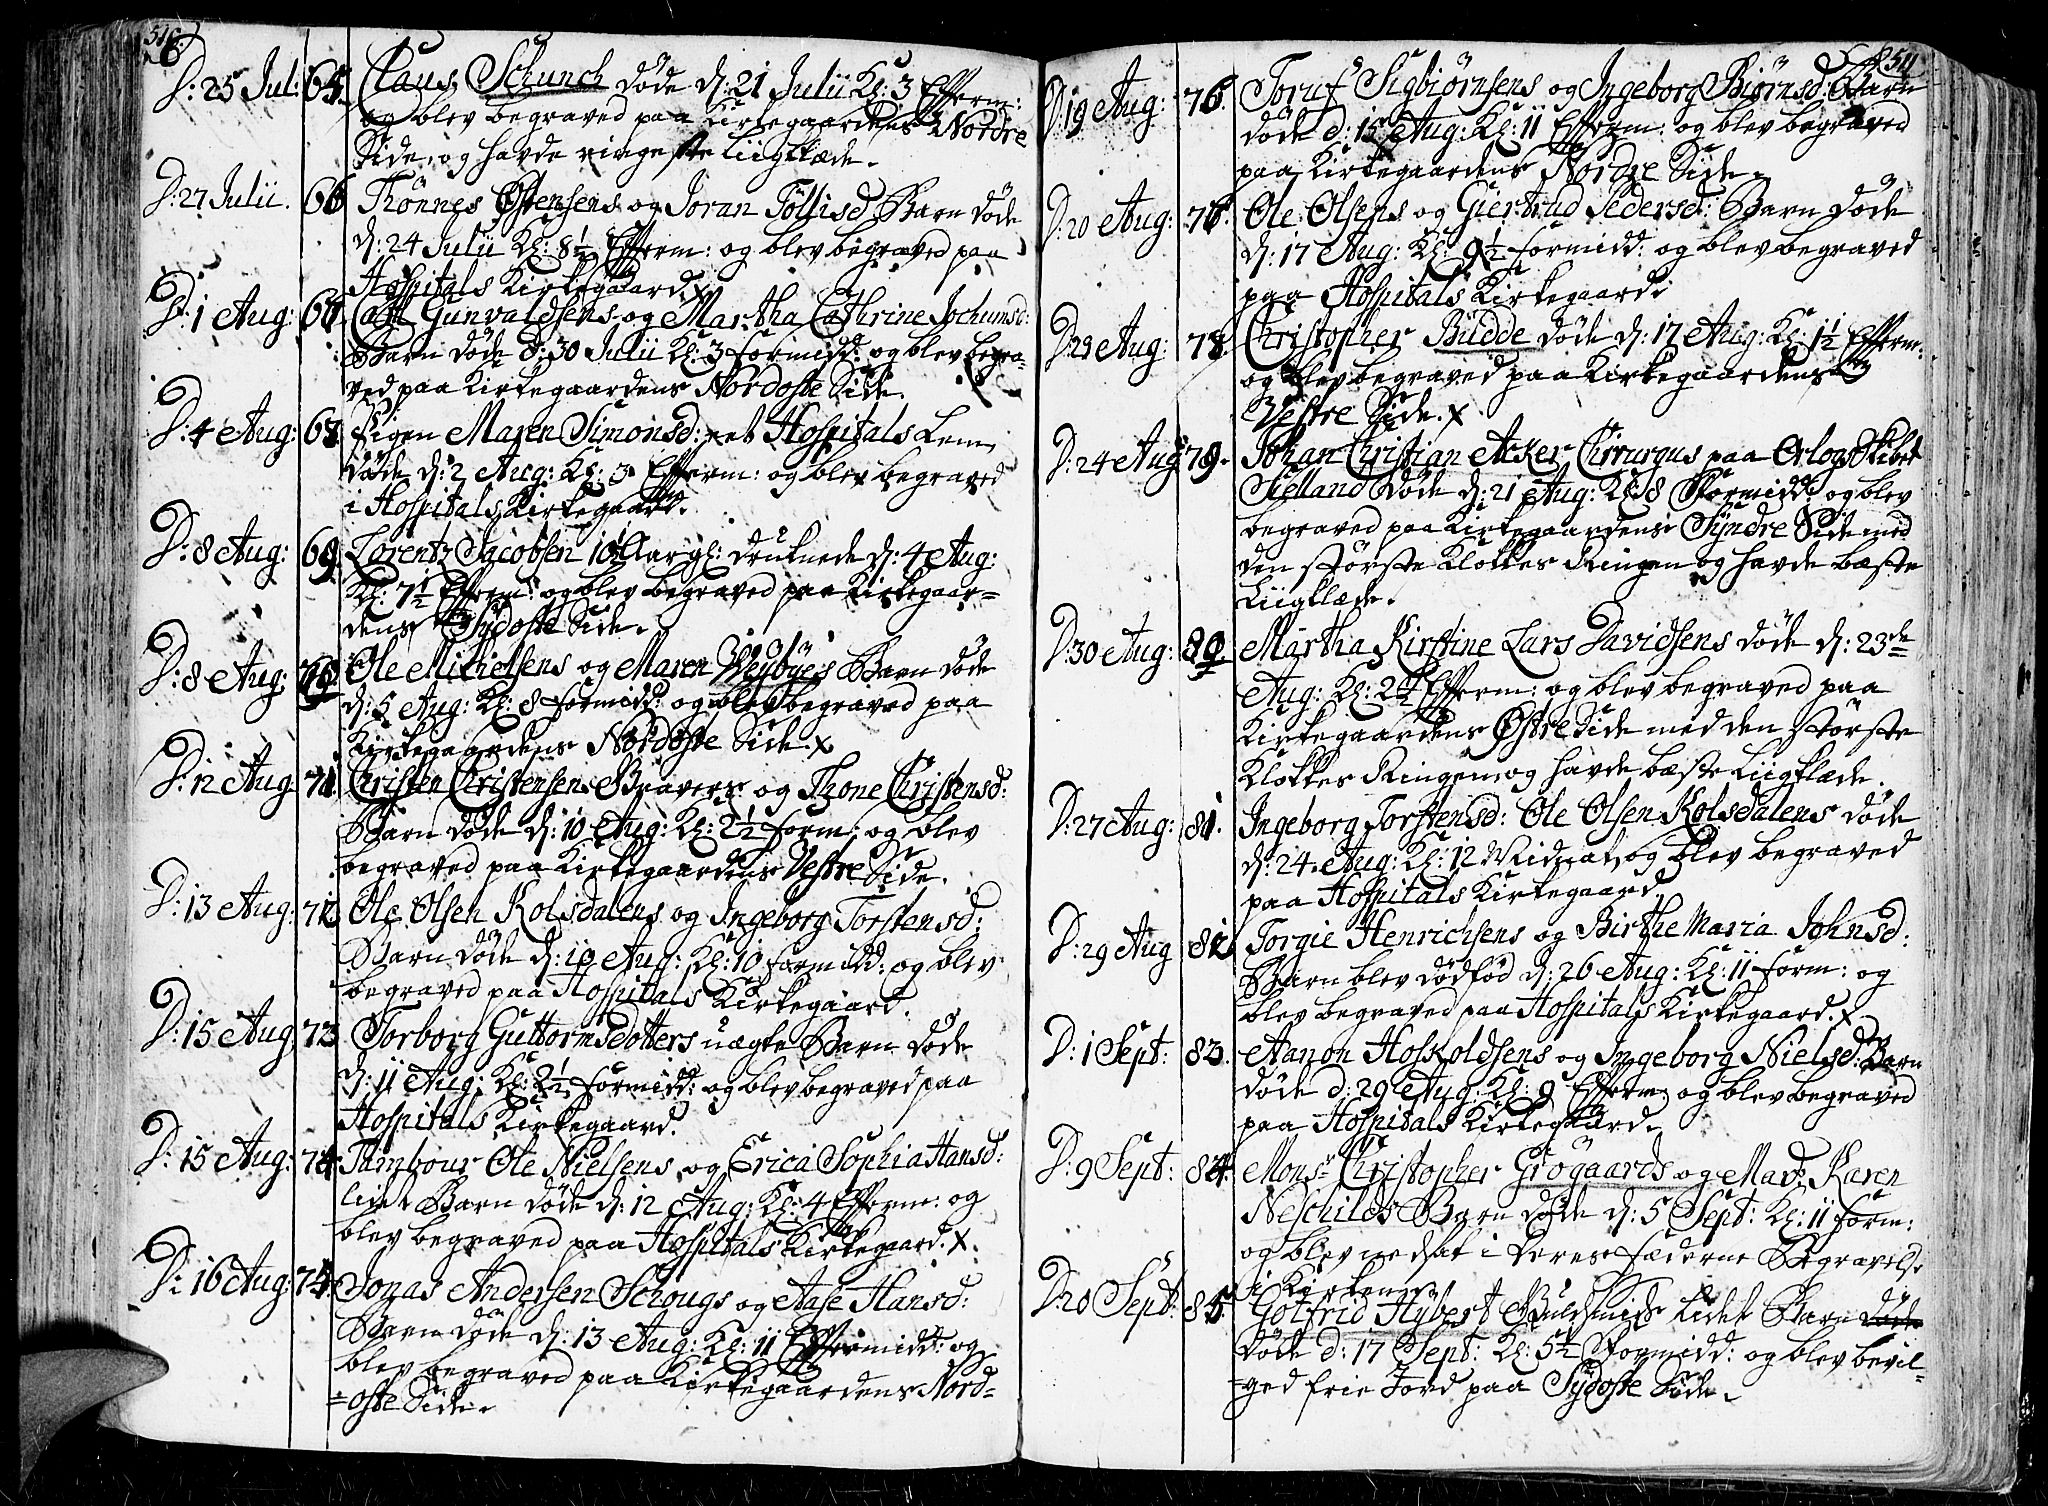 510.
D: 25 Jul: 65. Claus Schunch døde d: 21 Julii Kl: 3 Efferm:
og blev begraved paa Kirkegaardens Nordre
Side, og havde ringeste Liigklæde.
D: 27 Julii. 66 Thönnes Østensens og Joran Töllisd Barn døde
d: 24 Julii Kl: 8½ Efferm: og blev begraved paa
Hospitals Kirkegaard. x
D: 1 Aug: 67 Gunvaldsens og Martha Cathrine Jochumsd:
Barn døde d: 30 Julii Kl: 3 formidd: og blev begra-
ved paa Kirkegaardens Nordoste Side.
D: 4 Aug: 68. Pigen Maren Simonsd: et Hospitals Lem
døde d: 2 Aug: Kl: 3 Efferm: og blev begraved
i Hospitals Kirkegaard.
D: 8 Aug: 69. Lorentz Jacobsen 10 Aar gl: druknede d: 4 Aug:
Kl: 7½ Efferm: og blev begraved paa Kirkegaar=
dens Sydoste Side.
D: 8 Aug: Ole Mikielsens og Maren Weybye's Barn døde
d: 5 Aug: Kl: 8 formidd: og blev begraved paa
Kirkegaardens Nordoste Side. x
D: 12 Aug 71 Christen Christensens Gravers og Thone Christensd:
Barn døde d: 10 Aug: Kl: 2½ form: og blev
begraved paa Kirkegaardens Vestre Side.
D: 13 Aug: 72 Ole Olsen Kolsdalens og Ingeborg Torstensd:
Barn døde d: 10 Aug: Kl: 10 formidd: og blev
begraved paa Hospitals Kirkegaard.
D: 15 Aug 73 Torborg Guttormsdotters uægte Barn døde
d: 11 Aug: Kl: 2½ formidd: og blev begraved paa
Hospitals Kirkegaard.
D: 15 Aug: 74 Tambour Ole Nielsens og Erica Sophia Hansd:
lidet Barn døde d: 12 Aug: Kl: 4 Efferm: og
blev begraved paa Hospitals Kirkegaard. x.
D: 16 Aug: 75 Jonas Andersen Schougs og Aase Hansd:
Barn døde d: 13 Aug: Kl: 11 Effermidd: og
blev begraved paa Kirkegaardens Nord=
=oste Side.
511
D: 19 Aug: 76. Sigbiørnsens og Ingeborg Biørnsd: Barn
døde d: 15 Aug: Kl: 11 Efferm: og blev begraved
paa Kirkegaardens Nordre Side.
D: 20 Aug: Ole Olsens og Giertrud Pedersd: Barn døde
d: 17 Aug: Kl: 9½ formidd: og blev begraved
paa Hospitals Kirkegaard.
D: 23 Aug: 78. Christopher Budde døde d: 17 Aug: Kl: 1½ Efferm:
og blev begraved paa Kirkegaardens
Vestre Side. x
D: 24 Aug 79. Johan Christian Acker Chirurgus paa Orlog Skibet
Sielland døde d: 21 Aug: Kl: 8 Formidd: og blev
begraved paa Kirkegaardens Syndre Side med
den største Klokkes Ringen og havde bæste
Liigklæde.
D: 30 Aug: 80. Martha Kirstine Lars Davidsens døde d: 23de
Aug: Kl: 2½ Efferm: og blev begraved paa
Kirkegaardens Østre Side med den største
Klokkes Ringen, og havde bæste Liigklæde.
D: 27 Aug: 81. Ingeborg Torstensd: Ole Olsen Kolsdalens døde
d: 24. Aug: Kl: 12 Midnat, og blev begraved
paa Hospitals Kirkegaard.
D: 29 Aug 82 Torgie Henrichsens og Birthe Maria Johnsd:
Barn blev dødfød d: 26 Aug: Kl: 11 form: og
blev begraved paa Hospitals Kirkegaard. x
D: 1 Sept: 83. Aanon Hoskoldsens og Ingeborg Nielsd: Barn
døde d: 29 Aug: Kl: 9 Efferm: og blev begraved
paa Hospitals Kirkegaard.
D: 9 Sept: 84. Monsr Christopher Grögaards og Mad: Karen
Neschilds Barn døde d: 5 Sept: Kl: 11 form:
og blev nedsat i deres fæderne Begravelse
i Kirken.
D: 20 Sept: 85. Gotfrid Hybert Guldsmids lidet Barn døde
døde d: 17 Sept: Kl: 5½ Formidd: og blev bevil-
=ged frie Jord paa Sydoste Side.